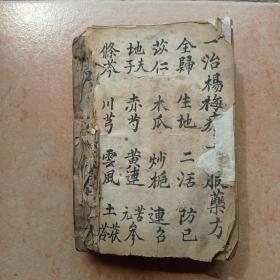 一治楊梅 服藥方
全歸 生地 二活 防已
苡仁 木瓜 炒栀 連召
地夫子 赤芍 黄連 苦參 元
條芩 川芎 雲風 土茯苓